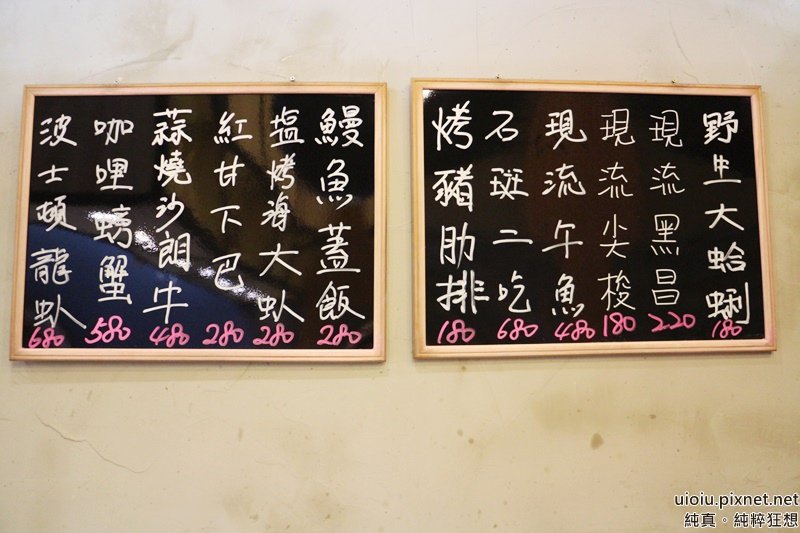 野生大蛤蜊 180
現流黑昌 220
現流尖梭 180
現流午魚 480
石斑二吃 680
烤豬肋排 180
鰻魚蓋飯 280
塩烤海大虾 280
紅甘下巴 280
蒜燒沙朗牛 480
咖哩螃蟹 580
波士頓龍虾 680
uioiu.pixnet.net
純真。純粹狂想